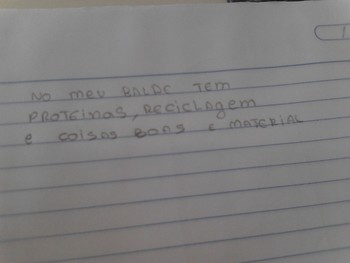 NO MEU BALDE TEM
PROTEINAS, RECICLAGEM
e COISAS BOAS E MATERIAL